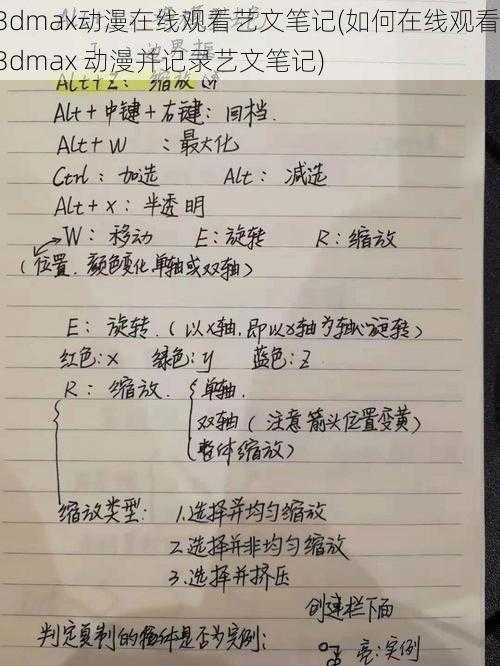 3dmax动漫在线观看艺文笔记(如何在线观看
3dmax 动漫并记录艺文笔记)
Alt+Z: 缩放
Alt+中键+右键: 回档.
Alt+W : 最大化
Ctrl: 加选 Alt: 减选
Alt+X: 半透明
W: 移动 E: 旋转 R: 缩放
(位置. 颜色变化 单轴或双轴)
E: 旋转.(以X轴,即以X轴为轴心旋转)
红色:x 绿色:y 蓝色:z
R: 缩放. 单轴.
双轴(注意箭头位置变黄)
整体缩放)
缩放类型: 1.选择并均匀缩放
2.选择并非均匀缩放
3.选择并挤压
创建栏下面
判定复制的物体是否为实例:
亮:实例